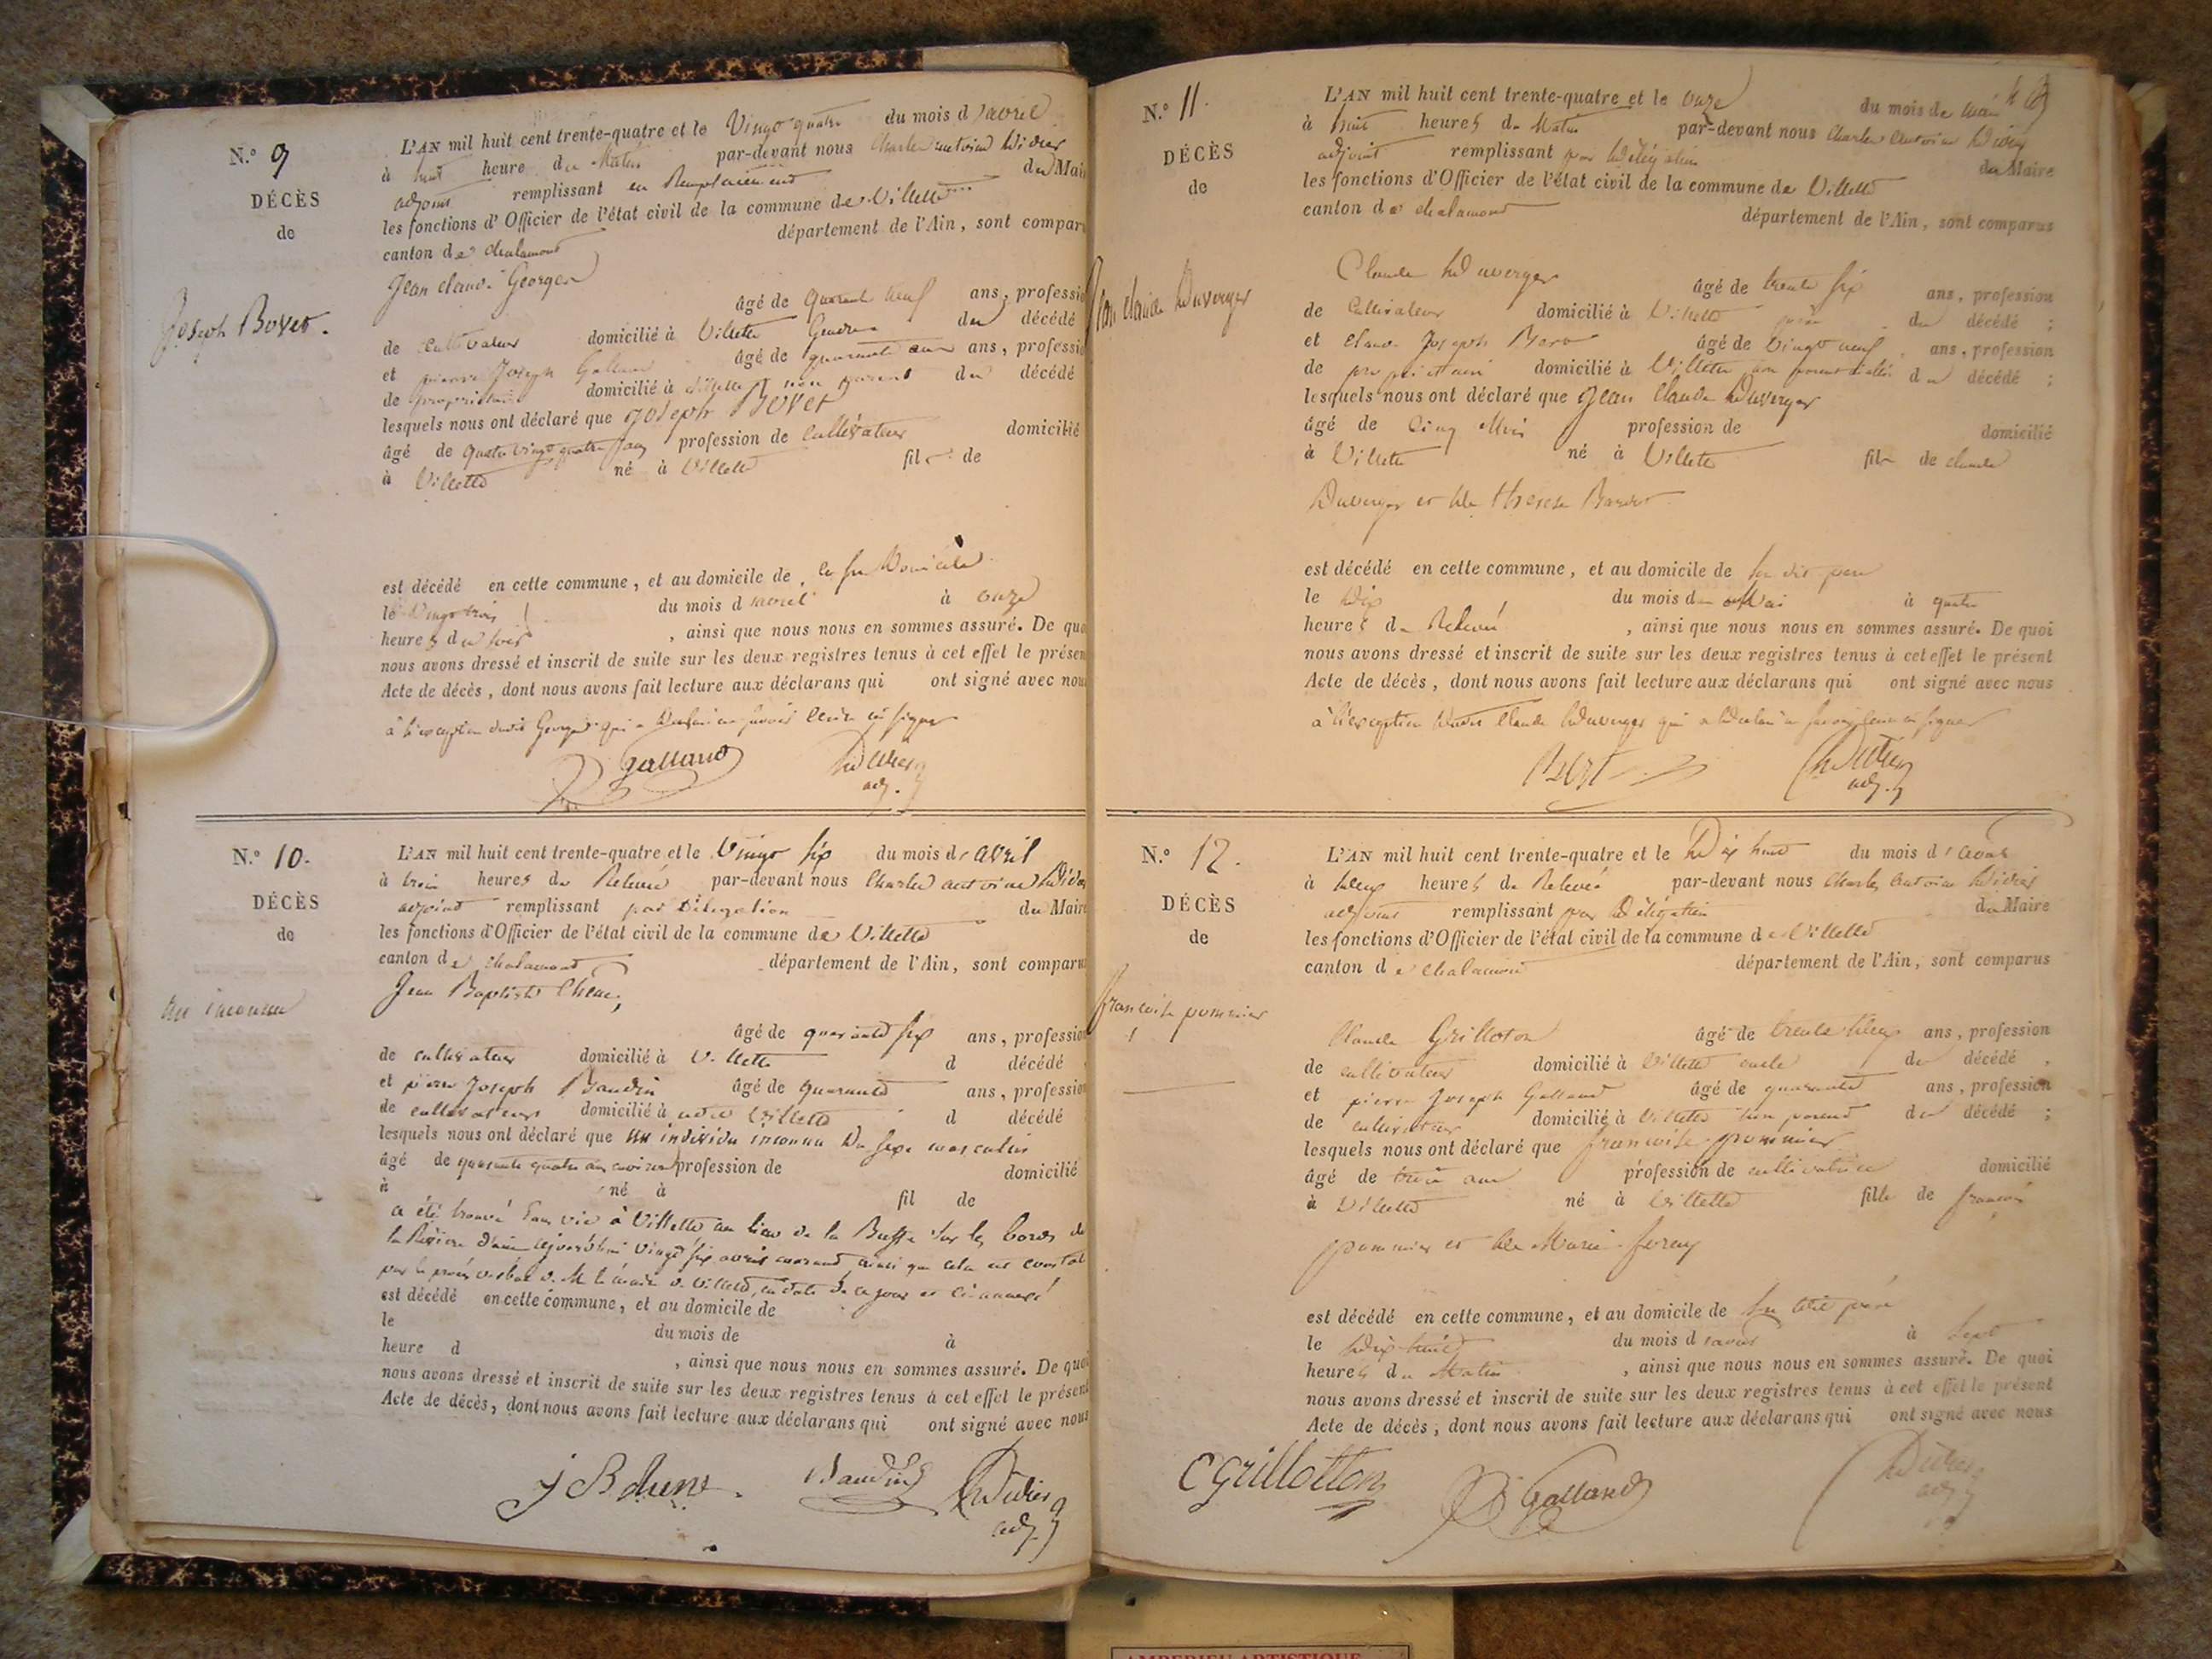 N.° 9
DÉCÈS
de
Joseph Bovet.
L'AN mil huit cent trente-quatre et le Vingt quatre du mois d'avril
à huit heure du Matin par-devant nous Charles antoine Didier
adjoint remplissant en Remplacement du Mai
les fonctions d'Officier de l'état civil de la commune de Villette
canton de chalamont département de l'Ain, sont compar
Jean claude Georges
âgé de quarante neuf ans, professi
de cultivateur domicilié à Villette Gendre du décédé
et pierre Joseph Galland âgé de quarante ans, professi
de propriétaire domicilié à Villette non parent du décédé
lesquels nous ont déclaré que Joseph Bovet
âgé de quatre vingt quatre ans profession de cultivateur domicilié
à Villette né à Villette fils de
est décédé en cette commune, et au domicile de
le Vingt trois du mois d'avril à onze
heures du soir, ainsi que nous nous en sommes assuré. De quo
nous avons dressé et inscrit de suite sur les deux registres tenus à cet effet le présen
Acte de décès, dont nous avons fait lecture aux déclarans qui ont signé avec nou
à l'exception dudit Georges qui a déclaré ne savoir signer
Galland Didier
adj.
N.° 10.
DÉCÈS
de
un inconnu
L'AN mil huit cent trente-quatre et le Vingt six du mois d'avril
à trois heures du Relevée par-devant nous Charles antoine Didier
adjoint remplissant par Délégation du Maire
les fonctions d'Officier de l'état civil de la commune de Villette
canton de chalamont département de l'Ain, sont comparu
Jean Baptiste Chene
âgé de quarante six ans, profession
de cultivateur domicilié à Villette d décédé
et pierre Joseph Baudin âgé de quarante ans, profession
de cultivateur domicilié à Villette d décédé
lesquels nous ont déclaré que un individu inconnu Du sexe masculin
âgé de quarante quatre ans environ profession de domicilié
à né à fil de
a été trouvé sans vie à Villette au lieu de la sur les bords de
la Rivière d'ain aujourd'hui vingt six avril courant ainsi que cela est constat
par le procès verbal de M. le maire de Villette, en date de ce jour et ci annexé
est décédé en cette commune, et au domicile de
le du mois de à
heure d, ainsi que nous nous en sommes assuré. De quoi
nous avons dressé et inscrit de suite sur les deux registres tenus à cet effet le présent
Acte de décès, dont nous avons fait lecture aux déclarans qui ont signé avec nous
J B chene Baudin Didier
adj.
N.° 11.
DÉCÈS
de
Jean claude Duverger
L'AN mil huit cent trente-quatre et le onze du mois de mai
à huit heures du Matin par-devant nous Charles Antoine Didier
adjoint remplissant par Délégation du Maire
les fonctions d'Officier de l'état civil de la commune de Villette
canton de chalamont département de l'Ain, sont comparus
Claude Duverger âgé de trente six ans, profession
de Cultivateur domicilié à Villette père du décédé ;
et claude Joseph âgé de vingt neuf ans, profession
de propriétaire domicilié à Villette non parent du décédé ;
lesquels nous ont déclaré que Jean Claude Duverger
âgé de Cinq Mois profession de domicilié
à Villette né à Villette fils de claude
Duverger et de Therese
est décédé en cette commune, et au domicile de son dit père
le Dix du mois de Mai à quatre
heures du Relevée, ainsi que nous nous en sommes assuré. De quoi
nous avons dressé et inscrit de suite sur les deux registres tenus à cet effet le présent
Acte de décès, dont nous avons fait lecture aux déclarans qui ont signé avec nous
à l'exception dudit Claude Duverger qui a déclaré ne savoir signer
Didier
adj.
N.° 12.
DÉCÈS
de
francoise pommier
L'AN mil huit cent trente-quatre et le Dix huit du mois d'aout
à deux heures de Relevée par-devant nous Charles Antoine Didier
adjoint remplissant par Délégation du Maire
les fonctions d'Officier de l'état civil de la commune de Villette
canton de chalamont département de l'Ain, sont comparus
Claude Grilloton âgé de trente deux ans, profession
de cultivateur domicilié à Villette oncle du décédé ,
et pierre Joseph Galland âgé de quarante ans, profession
de cultivateur domicilié à Villette non parent du décédé ;
lesquels nous ont déclaré que francoise pommier
âgé de trois ans profession de cultivatrice domicilié
à Villette né à Villette fille de francois
pommier et de Marie
est décédé en cette commune, et au domicile de son dit père
le Dix huit du mois d'aout à Sept
heures du Matin, ainsi que nous nous en sommes assuré. De quoi
nous avons dressé et inscrit de suite sur les deux registres tenus à cet effet le présent
Acte de décès, dont nous avons fait lecture aux déclarans qui ont signé avec nous
C grillotton Galland Didier
adj.
AMBERIEU ARTISTIQUE